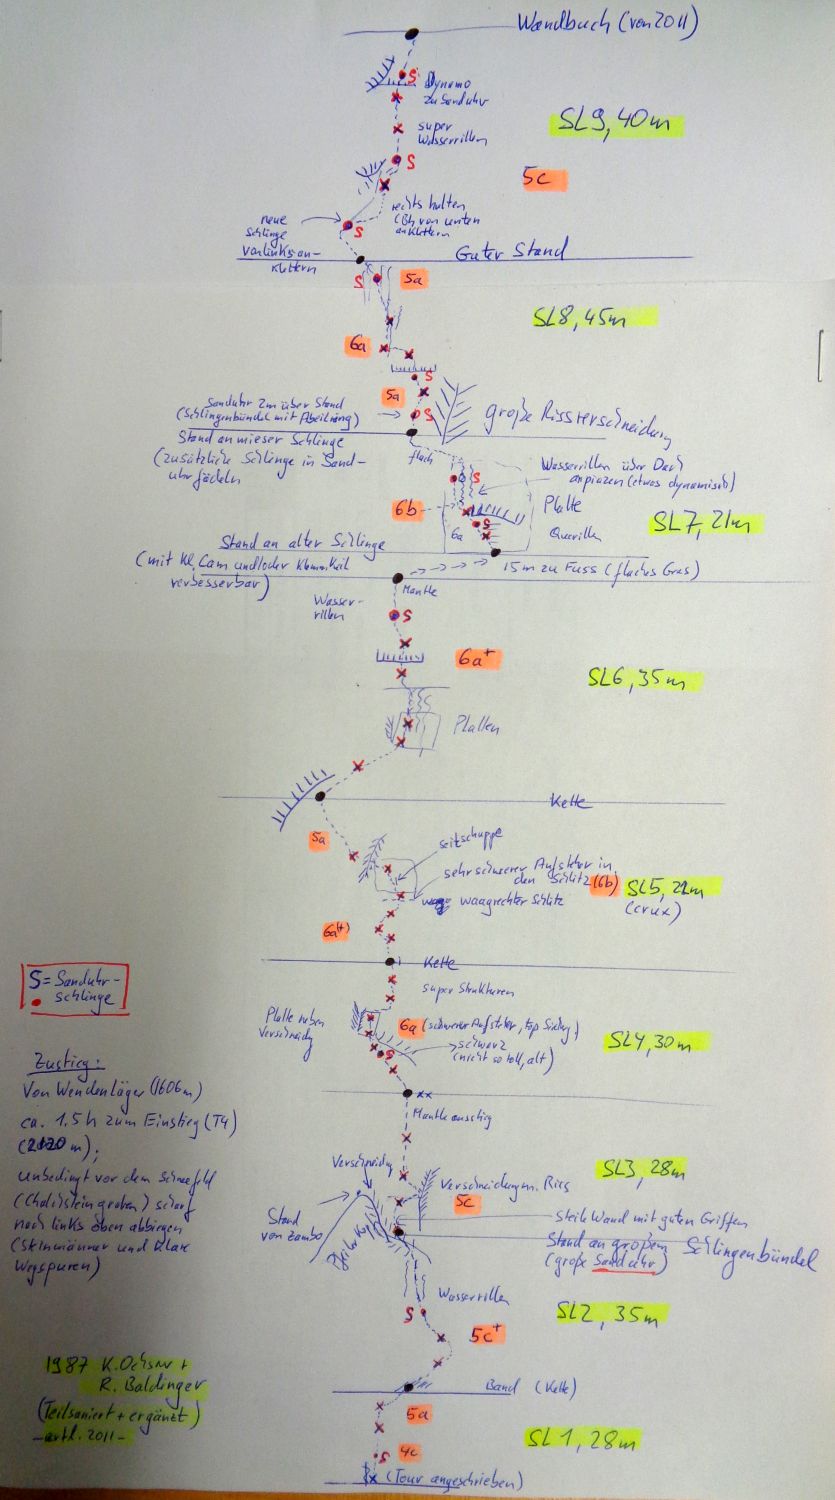 Wandbuch (von 2011)
S
Dynamo
zu Sanduhr
super
Wasserrillen
SL9, 40m
S
5c
rechts halten
(Bh von unten
anklettern
neue
Schlinge
von links an-
klettern
S
Guter Stand
S
5a
SL8, 45m
6a
S
5a
Sanduhr 2m über Stand
(Schlingenbündel mit Abseilring)
S
große Rissverschneidung
Stand an mieser Schlinge
(zusätzliche Schlinge in Sand-
uhr fädeln
flach
Wasserrillen über Dach
anpiazen (etwas dynamisch)
S
6b
Platte
SL7, 21m
S
6a
Querrillen
Stand an alter Schlinge
(mit kl. Cam und/oder Klemmkeil
verbesserbar)
15m zu Fuss (flaches Gras)
Mantle
Wasser-
rillen
S
6a+
SL6, 35m
Platten
Kette
5a
Seitschuppe
sehr schwerer Aufsteher in
den Schlitz (6b)
SL5, 22m
(crux)
waagrechter Schlitz
6a(+)
Kette
super Strukturen
S = Sanduhr-
schlinge
Platte neben
Verschneidg
6a (schwerer Aufsteher, top Sicherg)
schwarz
(nicht so toll, alt)
S
SL4, 30m
xx
Mantle ausstieg
Zustieg:
Von Wendenläger (1606m)
ca. 1.5h zum Einstieg (T4)
(2120m);
unbedingt vor dem Schneefeld
(Chalchsteingraben) scharf
nach links oben abbiegen
(Steinmänner und klare
Wegspuren)
SL3, 28m
Verschneidg
Verschneidung m. Riss
5c
Stand
von Zambo
Pfeilerkopf
steile Wand mit guten Griffen
Stand an großem Schlingenbündel
(große Sanduhr)
Wasserrillen
S
SL2, 35m
5c+
1987 K. Ochsner +
R. Baldinger
(Teilsaniert + ergänzt)
Band (Kette)
5a
SL1, 28m
S
4c
(Tour angeschrieben)